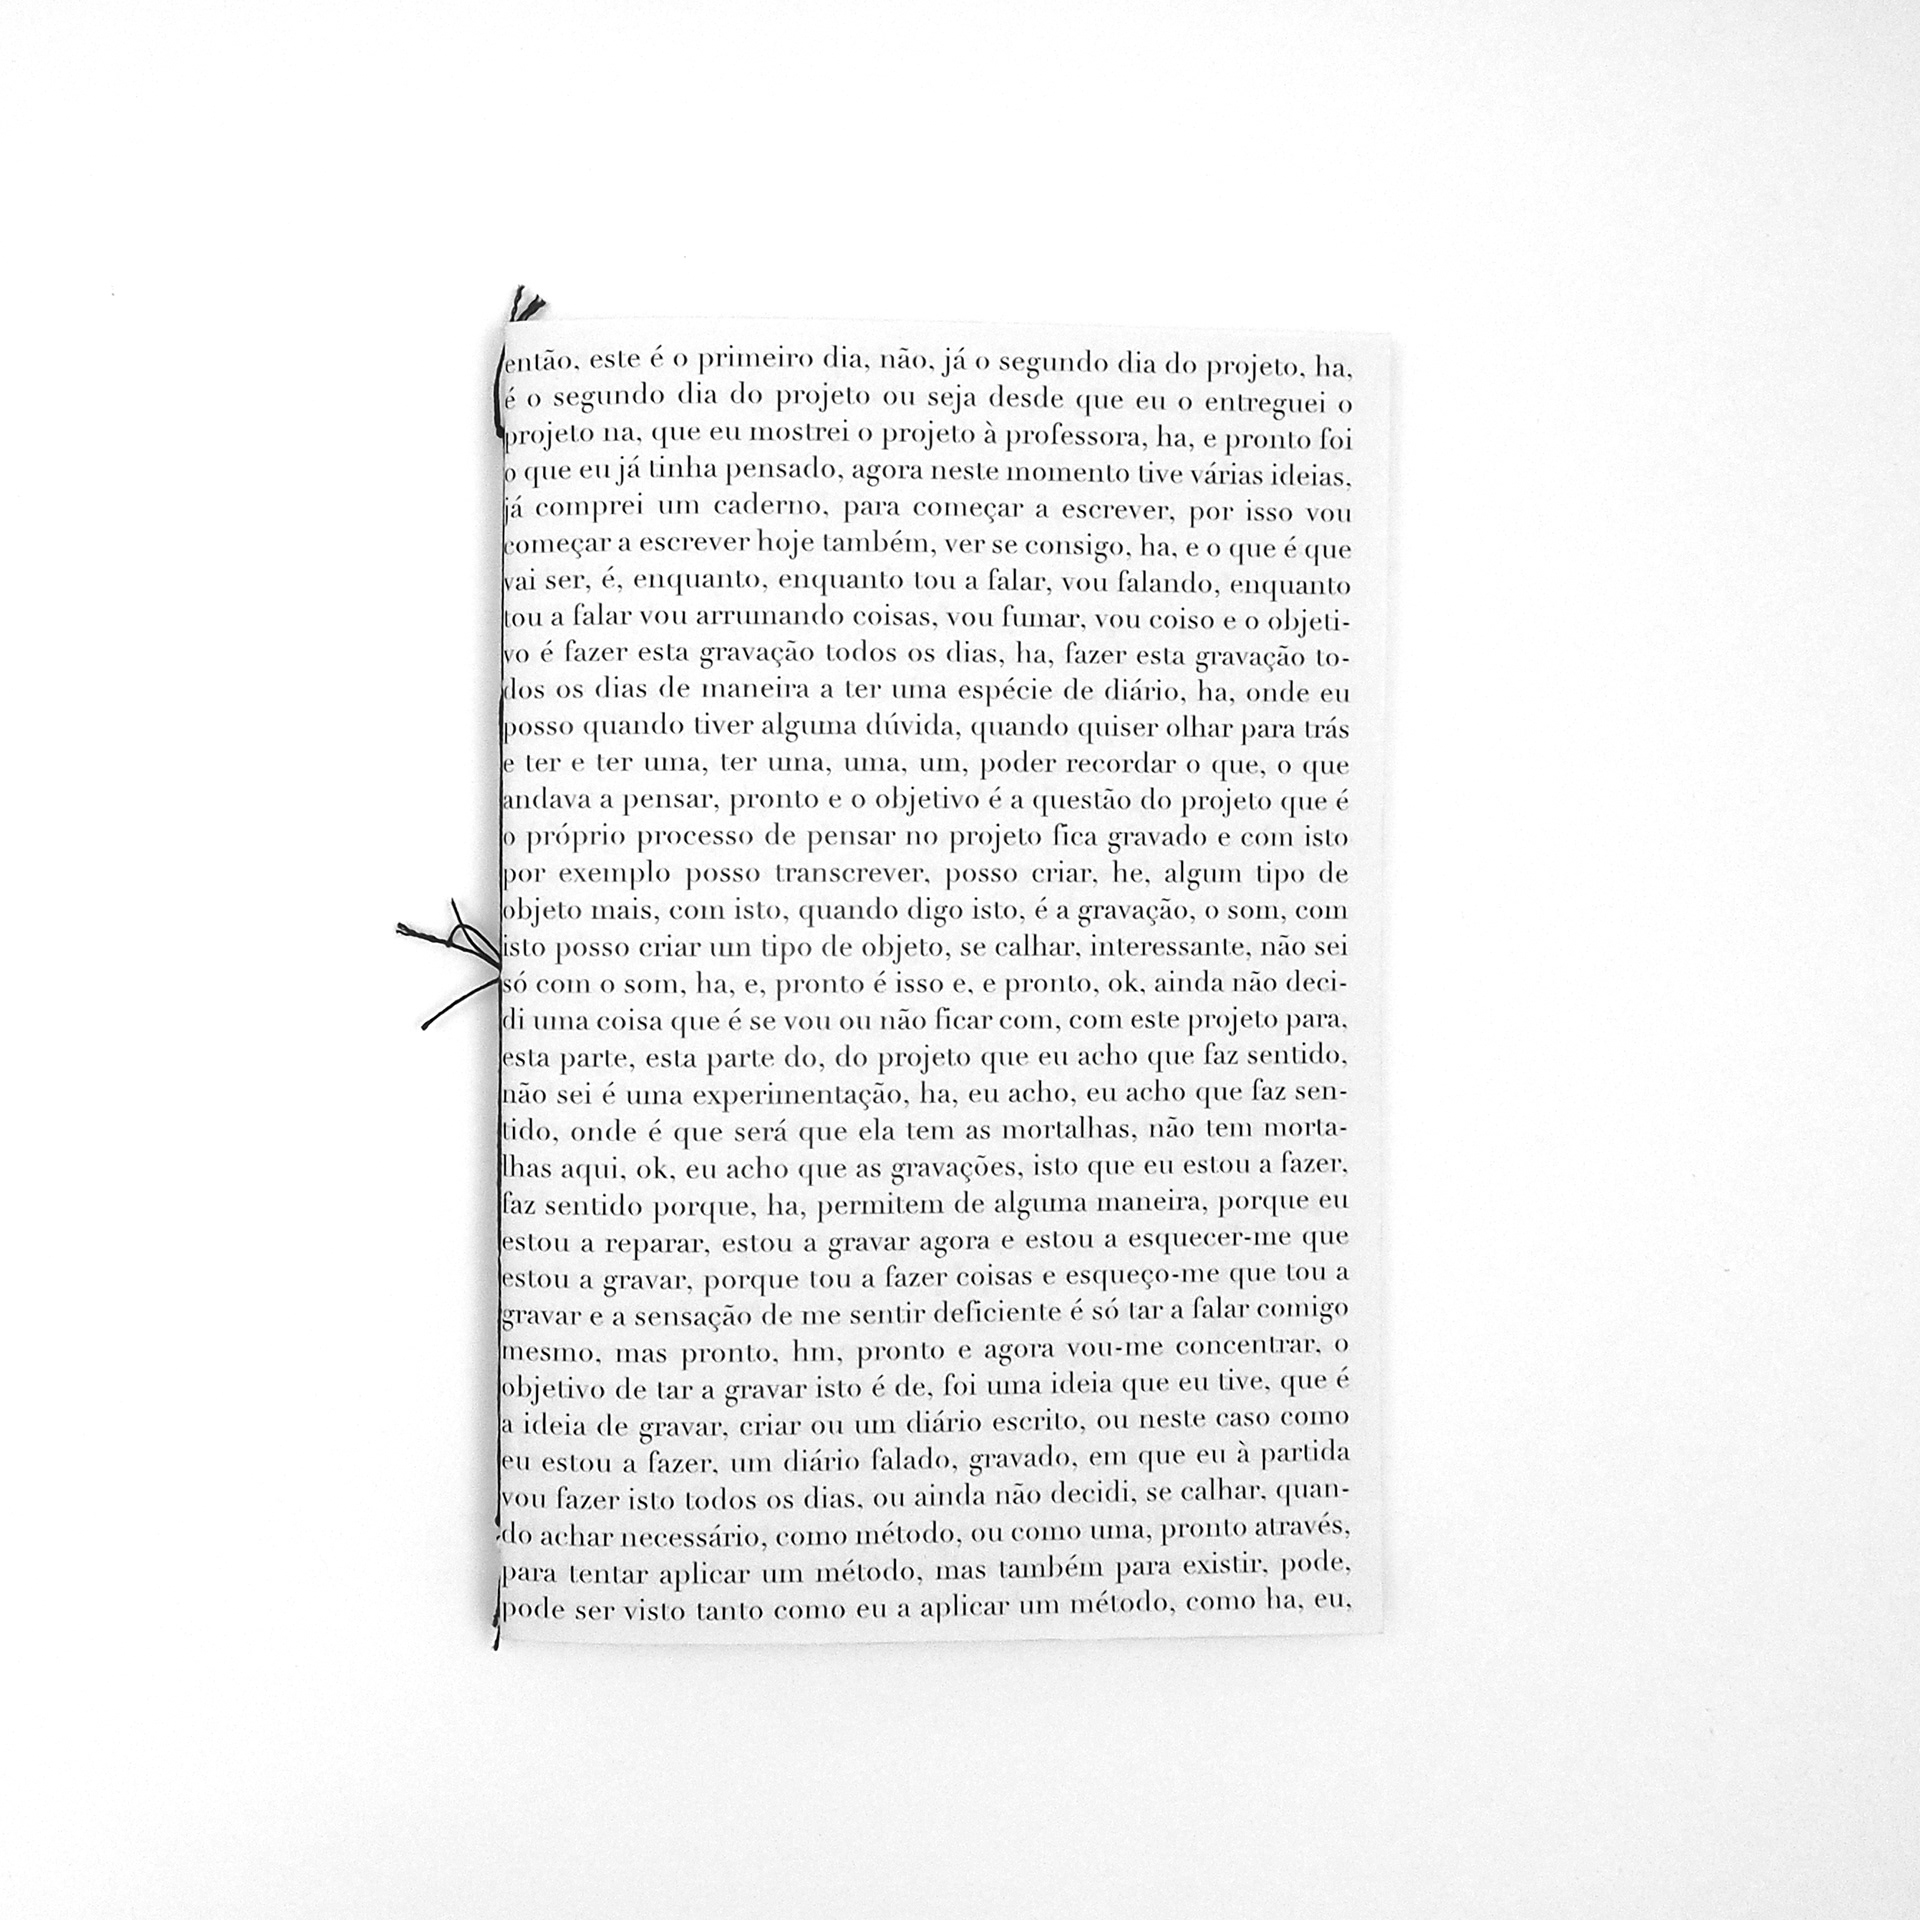 então, este é o primeiro dia, não, já o segundo dia do projeto, ha,
é o segundo dia do projeto ou seja desde que eu o entreguei o
projeto na, que eu mostrei o projeto à professora, ha, e pronto foi
o que eu já tinha pensado, agora neste momento tive várias ideias,
já comprei um caderno, para começar a escrever, por isso vou
começar a escrever hoje também, ver se consigo, ha, e o que é que
vai ser, é, enquanto, enquanto tou a falar, vou falando, enquanto
tou a falar vou arrumando coisas, vou fumar, vou coiso e o objeti-
vo é fazer esta gravação todos os dias, ha, fazer esta gravação to-
dos os dias de maneira a ter uma espécie de diário, ha, onde eu
posso quando tiver alguma dúvida, quando quiser olhar para trás
e ter e ter uma, ter uma, uma, um, poder recordar o que, o que
andava a pensar, pronto e o objetivo é a questão do projeto que é
o próprio processo de pensar no projeto fica gravado e com isto
por exemplo posso transcrever, posso criar, he, algum tipo de
objeto mais, com isto, quando digo isto, é a gravação, o som, com
isto posso criar um tipo de objeto, se calhar, interessante, não sei
só com o som, ha, e, pronto é isso e, e pronto, ok, ainda não deci-
di uma coisa que é se vou ou não ficar com, com este projeto para,
esta parte, esta parte do, do projeto que eu acho que faz sentido,
não sei é uma experimentação, ha, eu acho, eu acho que faz sen-
tido, onde é que será que ela tem as mortalhas, não tem morta-
lhas aqui, ok, eu acho que as gravações, isto que eu estou a fazer,
faz sentido porque, ha, permitem de alguma maneira, porque eu
estou a reparar, estou a gravar agora e estou a esquecer-me que
estou a gravar, porque tou a fazer coisas e esqueço-me que tou a
gravar e a sensação de me sentir deficiente é só tar a falar comigo
mesmo, mas pronto, hm, pronto e agora vou-me concentrar, o
objetivo de tar a gravar isto é de, foi uma ideia que eu tive, que é
a ideia de gravar, criar ou um diário escrito, ou neste caso como
eu estou a fazer, um diário falado, gravado, em que eu à partida
vou fazer isto todos os dias, ou ainda não decidi, se calhar, quan-
do achar necessário, como método, ou como uma, pronto através,
para tentar aplicar um método, mas também para existir, pode,
pode ser visto tanto como eu a aplicar um método, como ha, eu,